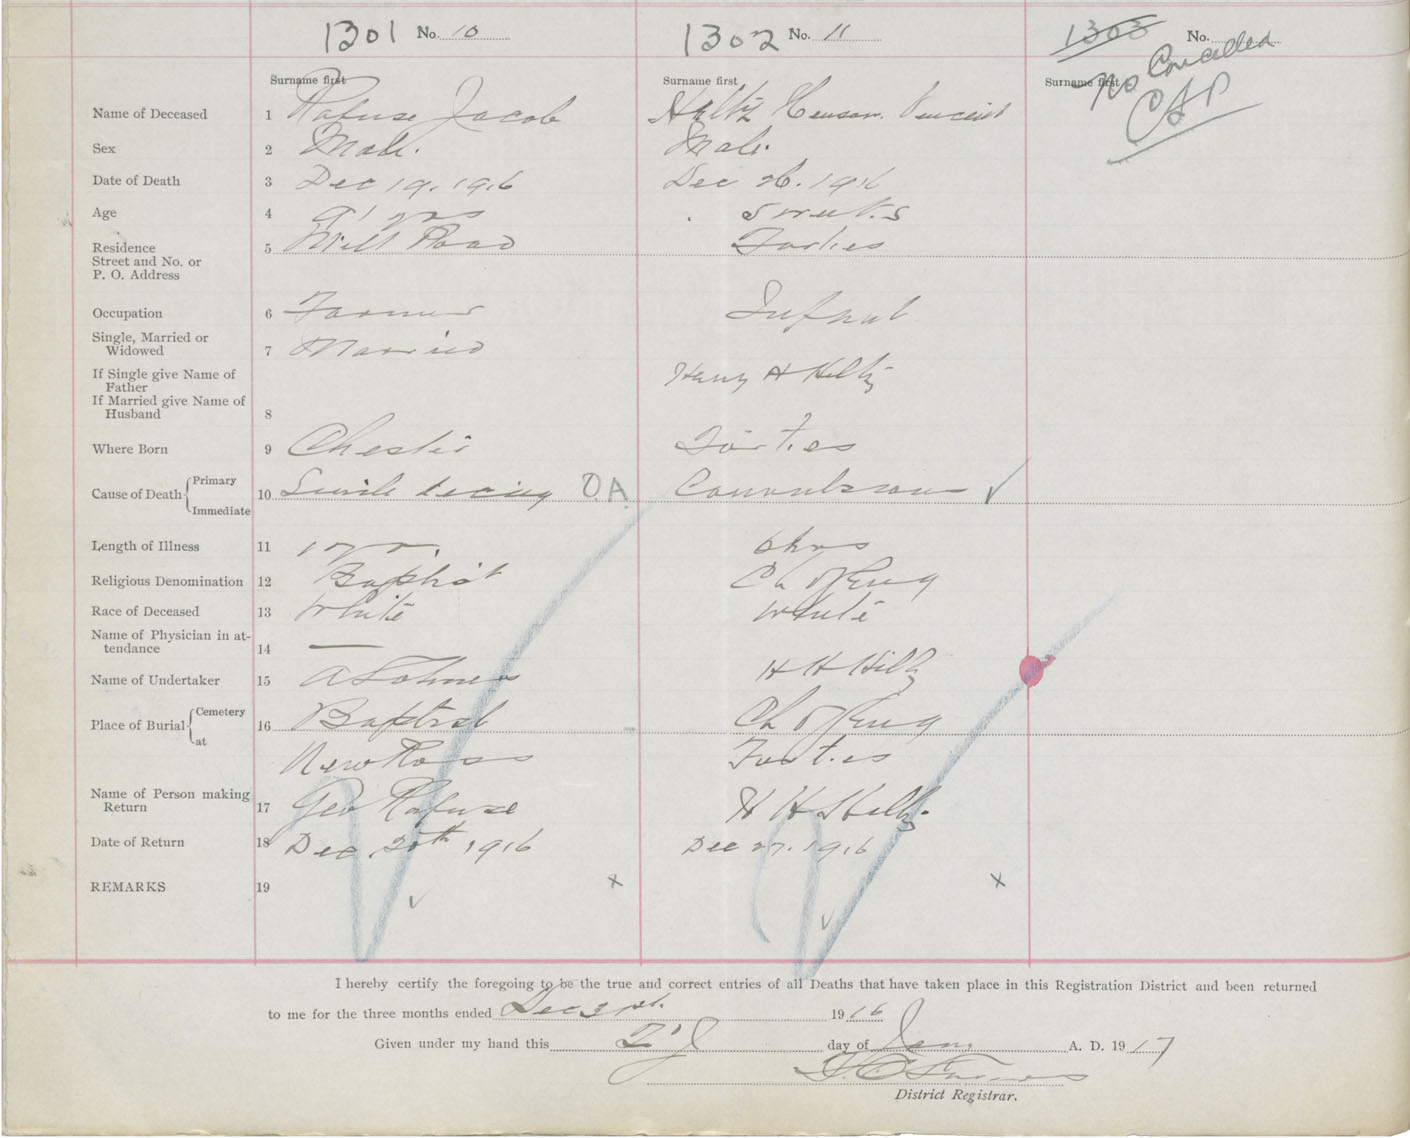 1301 No. 10
1302 No. 11
1303 No.
No Cancelled
Surname first
Surname first
Surname first
Name of Deceased 1 Rafuse Jacob
Hiltz Henson
Sex 2 Male.
Male.
Date of Death 3 Dec 19, 1916
Dec 26. 1916
Age 4 91 yrs
5 weeks
Residence
Street and No. or
P. O. Address
5 Mill Road
Forties
Occupation 6 Farmer
Infant
Single, Married or
Widowed 7 Married
If Single give Name of
Father
Henry H Hiltz
If Married give Name of
Husband 8
Where Born 9 Chester
Forties
Cause of Death Primary
Immediate
10 Senile decay O.A.
Convulsions ✓
Length of Illness 11 1 yr.
6 hrs
Religious Denomination 12 Baptist
Ch of Eng
Race of Deceased 13 White
White
Name of Physician in at-
tendance 14 —
Name of Undertaker 15
H H Hiltz
Place of Burial Cemetery
at
16 Baptist
Ch of Eng
New Ross
Forties
Name of Person making
Return 17 Geo Rafuse
H H Hiltz
Date of Return 18 Dec 20th, 1916
Dec 27. 1916
REMARKS 19 x
x
I hereby certify the foregoing to be the true and correct entries of all Deaths that have taken place in this Registration District and been returned
to me for the three months ended Dec 31st. 1916
Given under my hand this day of Jan A. D. 1917
District Registrar.